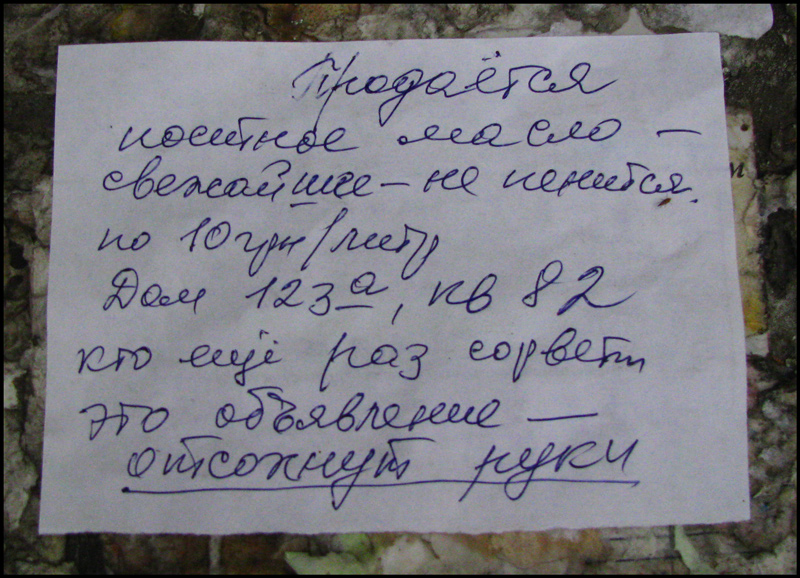 Продаётся
постное масло —
свежайшее — не пенится.
по 10 грн/литр
Дом 123а, кв 82
кто ещё раз сорвет
это объявление —
отсохнут руки